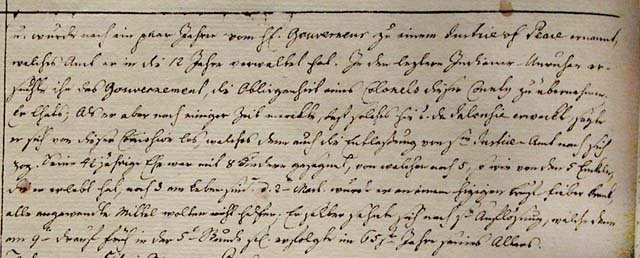 u. wurde nach ein paar Jahren vom H. Gouverneur zu einem Justice of Peace ernannt,
welches Amt er in die 12 Jahre verwaltet hat. In den leztern Indianer-Unruhen er-
suchte ihn das Gouvernement, die Obligenheit eines Colonels dieser County zu übernehmen,
er thats; Als er aber nach einiger Zeit merckte, daß solches hie u. da Jalousie erweckt sagte
er sich von dieser Charge los, welches denn auch die Entlassung von sm Justice-Amt nach sich
zog. Seine 42 jährige Ehe war mit 8 Kindern gesegnet, von welchen noch 5, so wie von den 5 Enkeln,
die er erlebt hat, noch 3 am Leben sind. d. 2t Mart. wurde er an einem hizigen Fieber kranck
alle angewandte Mittel wolten nicht helfen. Er selber sehnte sich nach sr Auflösung, welche denn
am 9t drauf früh in der 5t Stunde sel. erfolgte im 65sten Jahre seines Alters.